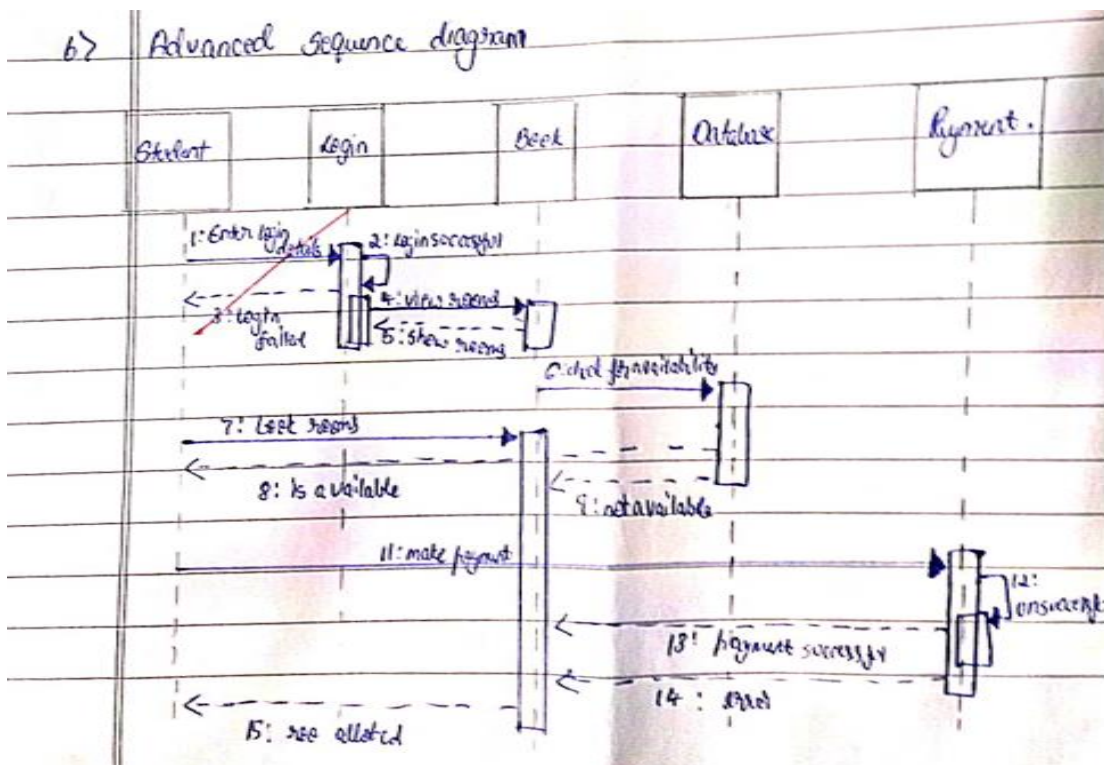 b> Advanced sequence diagram
Student Login Book Database Payment.
1: Enter login details
2: Login successful
3: Login failed
4: view rooms
5: show rooms
6: for availability
7: book rooms
8: is available
9: not available
11: make payment
12:
13: payment successful
14: error
15: alloted